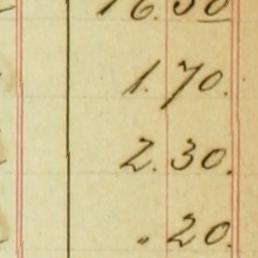 16.50
1.70.
2.30.
" 20.